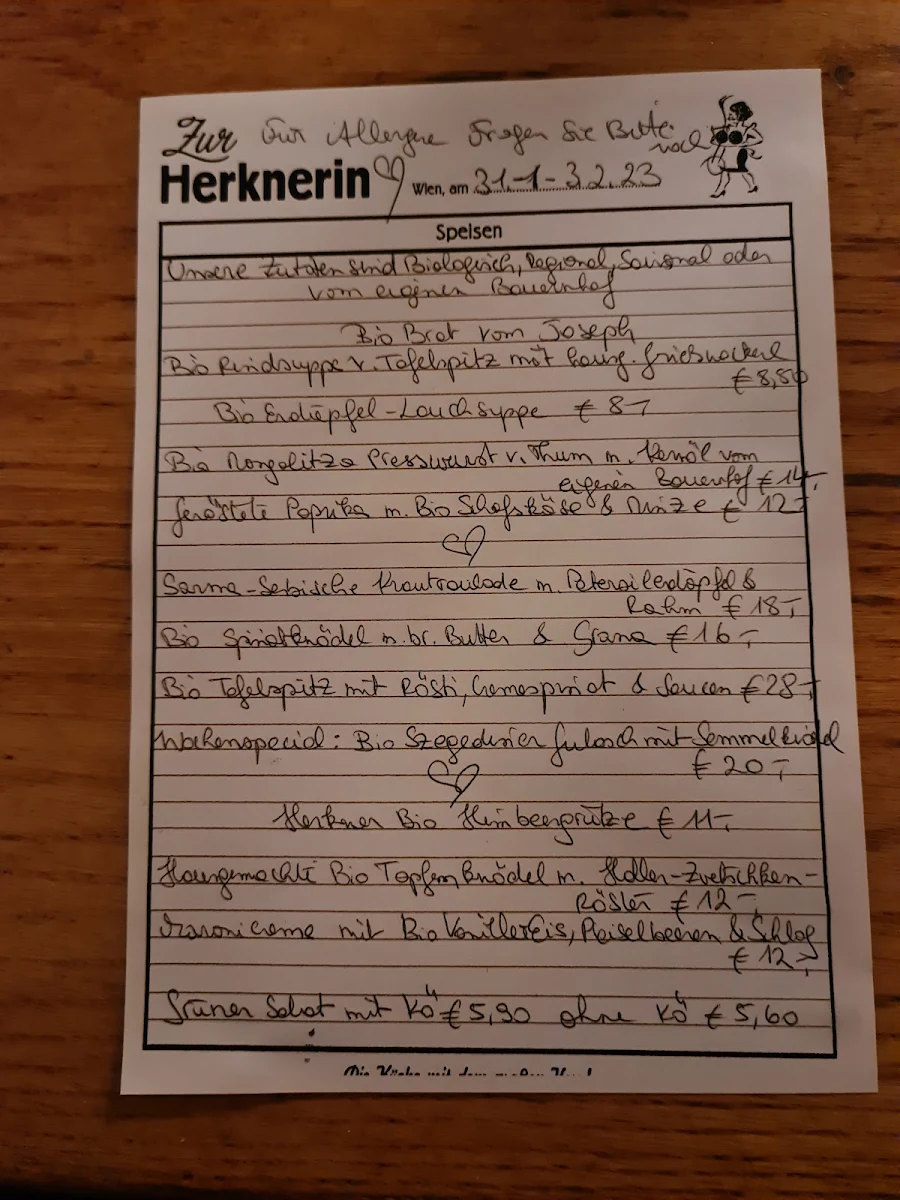 Zur Für Allergene Fragen Sie Bitte
nach
Herknerin Wien, am 31.1-3.2.23
Speisen
Unsere Zutaten sind Biologisch, Regional, Saisonal oder
vom eigenen Bauernhof
Bio Brot vom Joseph
Bio Rindsuppe v. Tafelspitz mit hausg. Griesnockerl
€ 8,50
Bio Erdäpfel-Lauchsuppe € 8-
Bio Mongolitza Presswurst v. Thum m. Kernöl vom
eigenen Bauernhof € 14,
Geröstete Paprika m. Bio Schafskäse & Minze € 12-
Sarma-Serbische Krautroulade m. Petersilerdäpfel &
Rahm € 18,-
Bio Spinatknödel m. br. Butter & Grana € 16,-
Bio Tafelspitz mit Rösti, Cremespinat & Saucen € 28,-
Wochenspecial: Bio Szegediner Gulasch mit Semmelknödel
€ 20,-
Herkner Bio Himbeergrütze € 11,-
Hausgemachte Bio Topfenknödel m. Holler-Zwetschken-
Röster € 12,-
mit Bio Vanilleeis, Preiselbeeren & Schlag
€ 12,-
Grüner Salat mit KÖ € 5,90 ohne KÖ € 5,60